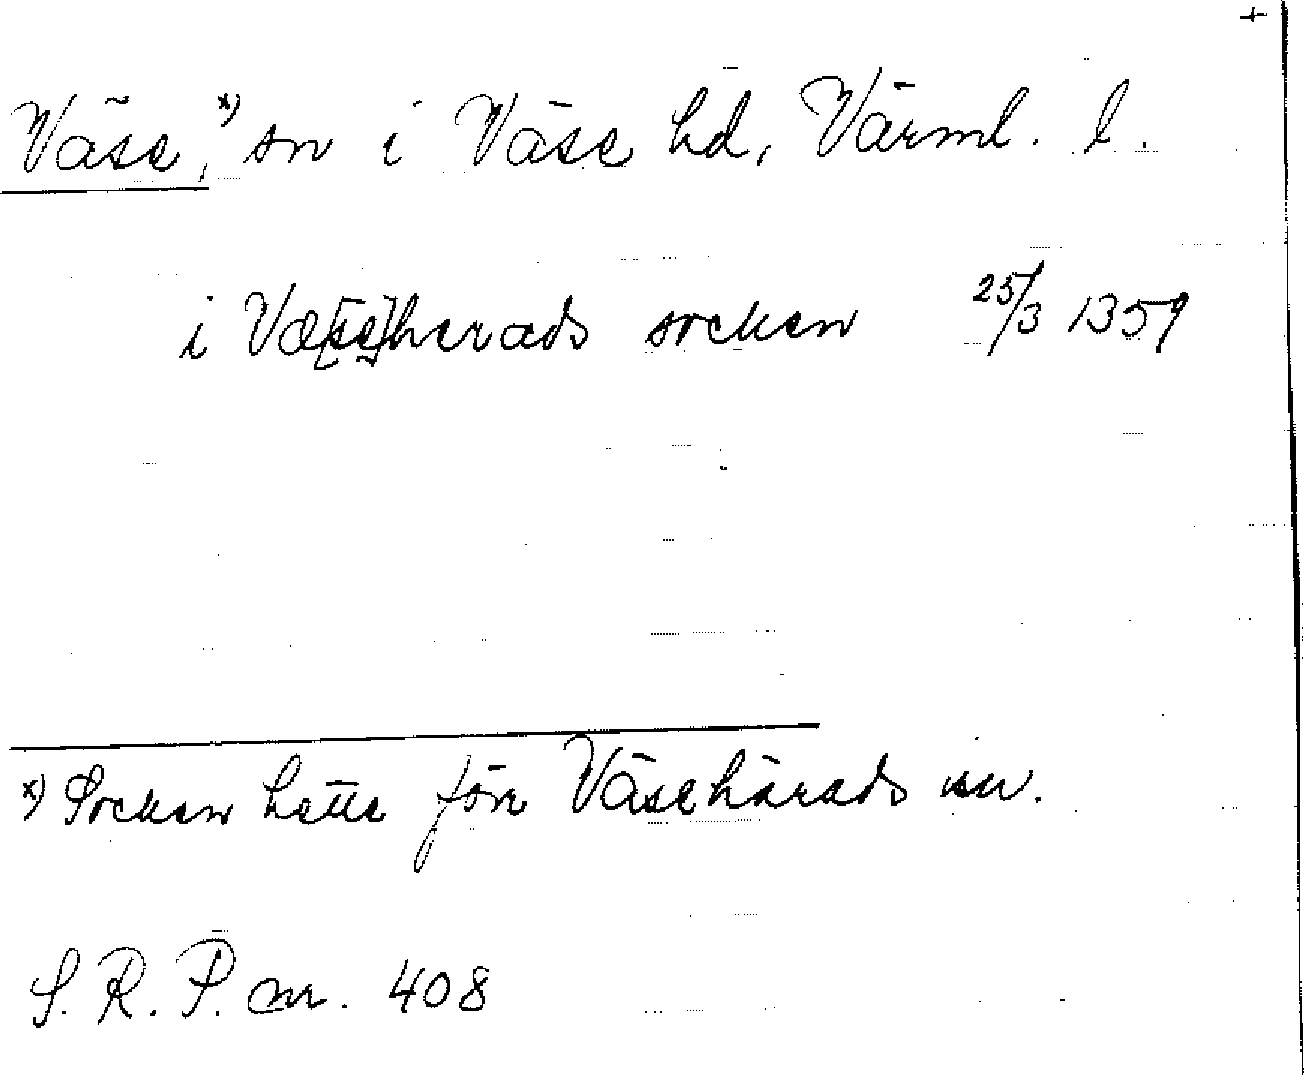 +
Väse,x) sn i Väse hd, Värml. l.
i Væ[se]herads socken 25/3 1359
x) Socken hette förr Väsehärads sn.
S.R.P. nr. 408